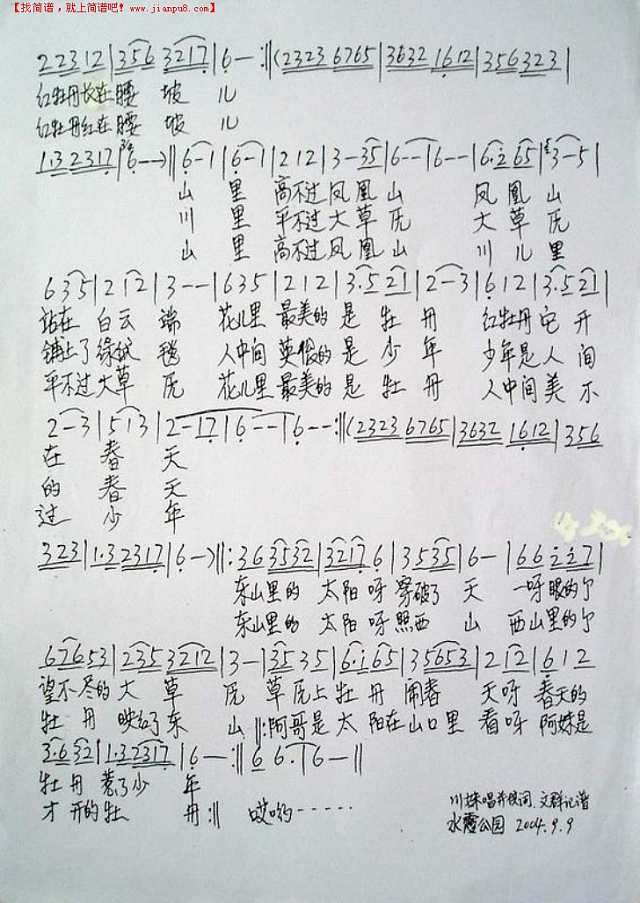 【找简谱,就上简谱吧! www.jianpu8.com】
2231 2 | 356 3217 | 6 — :‖ (2323 6765 | 3632 1612 | 356 323 |
红牡丹长在腰 坡 儿
红牡丹红在腰 坡 儿
1·3 2317 | 6 — ) ‖ 6 — 1 | 6 — 1 | 2 1 2 | 3 — 35 | 6 — — | 6 — — | 6·i 65 | 3 — 5 |
山 里 高不过凤凰山 凤凰山
川 里 平不过大草原 大草原
山 里 高不过凤凰山 川儿里
6 3 5 | 2 12 | 3 — — | 6 3 5 | 2 1 2 | 3·5 21 | 2 — 3 | 6 1 2 | 3·5 21 |
站在 白云 端 花儿里 最美的 是 牡 丹 红牡丹 它 开
铺上了绿绒 毯 人中间 英俊的 是 少 年 少年是 人 间
平不过大草 原 花儿里 最美的 是 牡 丹 人中间美 不
2 — 3 | 5 1 3 | 2 — 17 | 6 — — | 6 — — :‖ (2323 6765 | 3632 1612 | 356
在 春 天
的 春 天
过 少 年
323 | 1·3 2317 | 6 — ) ‖: 36 3532 | 3217 6 | 35 35 | 6 — | 66 ii7 |
东山里的 太阳呀 穿破了 天 一呀眼的个
东山里的 太阳呀 照西 山 西山里的个
6765 3 | 235 3212 | 3 — | 35 35 | 6·i 65 | 3 5653 | 2 12 | 6 1 2
望不尽的 大 草 原 草原上 牡 丹 闹春 天呀 春天的
牡 丹 映红了东 山 ‖: 阿哥是 太 阳在山口里 看呀 阿妹是
3·6 32 | 1·3 2317 | 6 — :‖ 6 6· | 6 — ‖
牡丹 惹了少 年
才开的牡 丹 :‖ 哎哟······
川妹唱并改词、文群记谱
水霞公园 2004.9.9